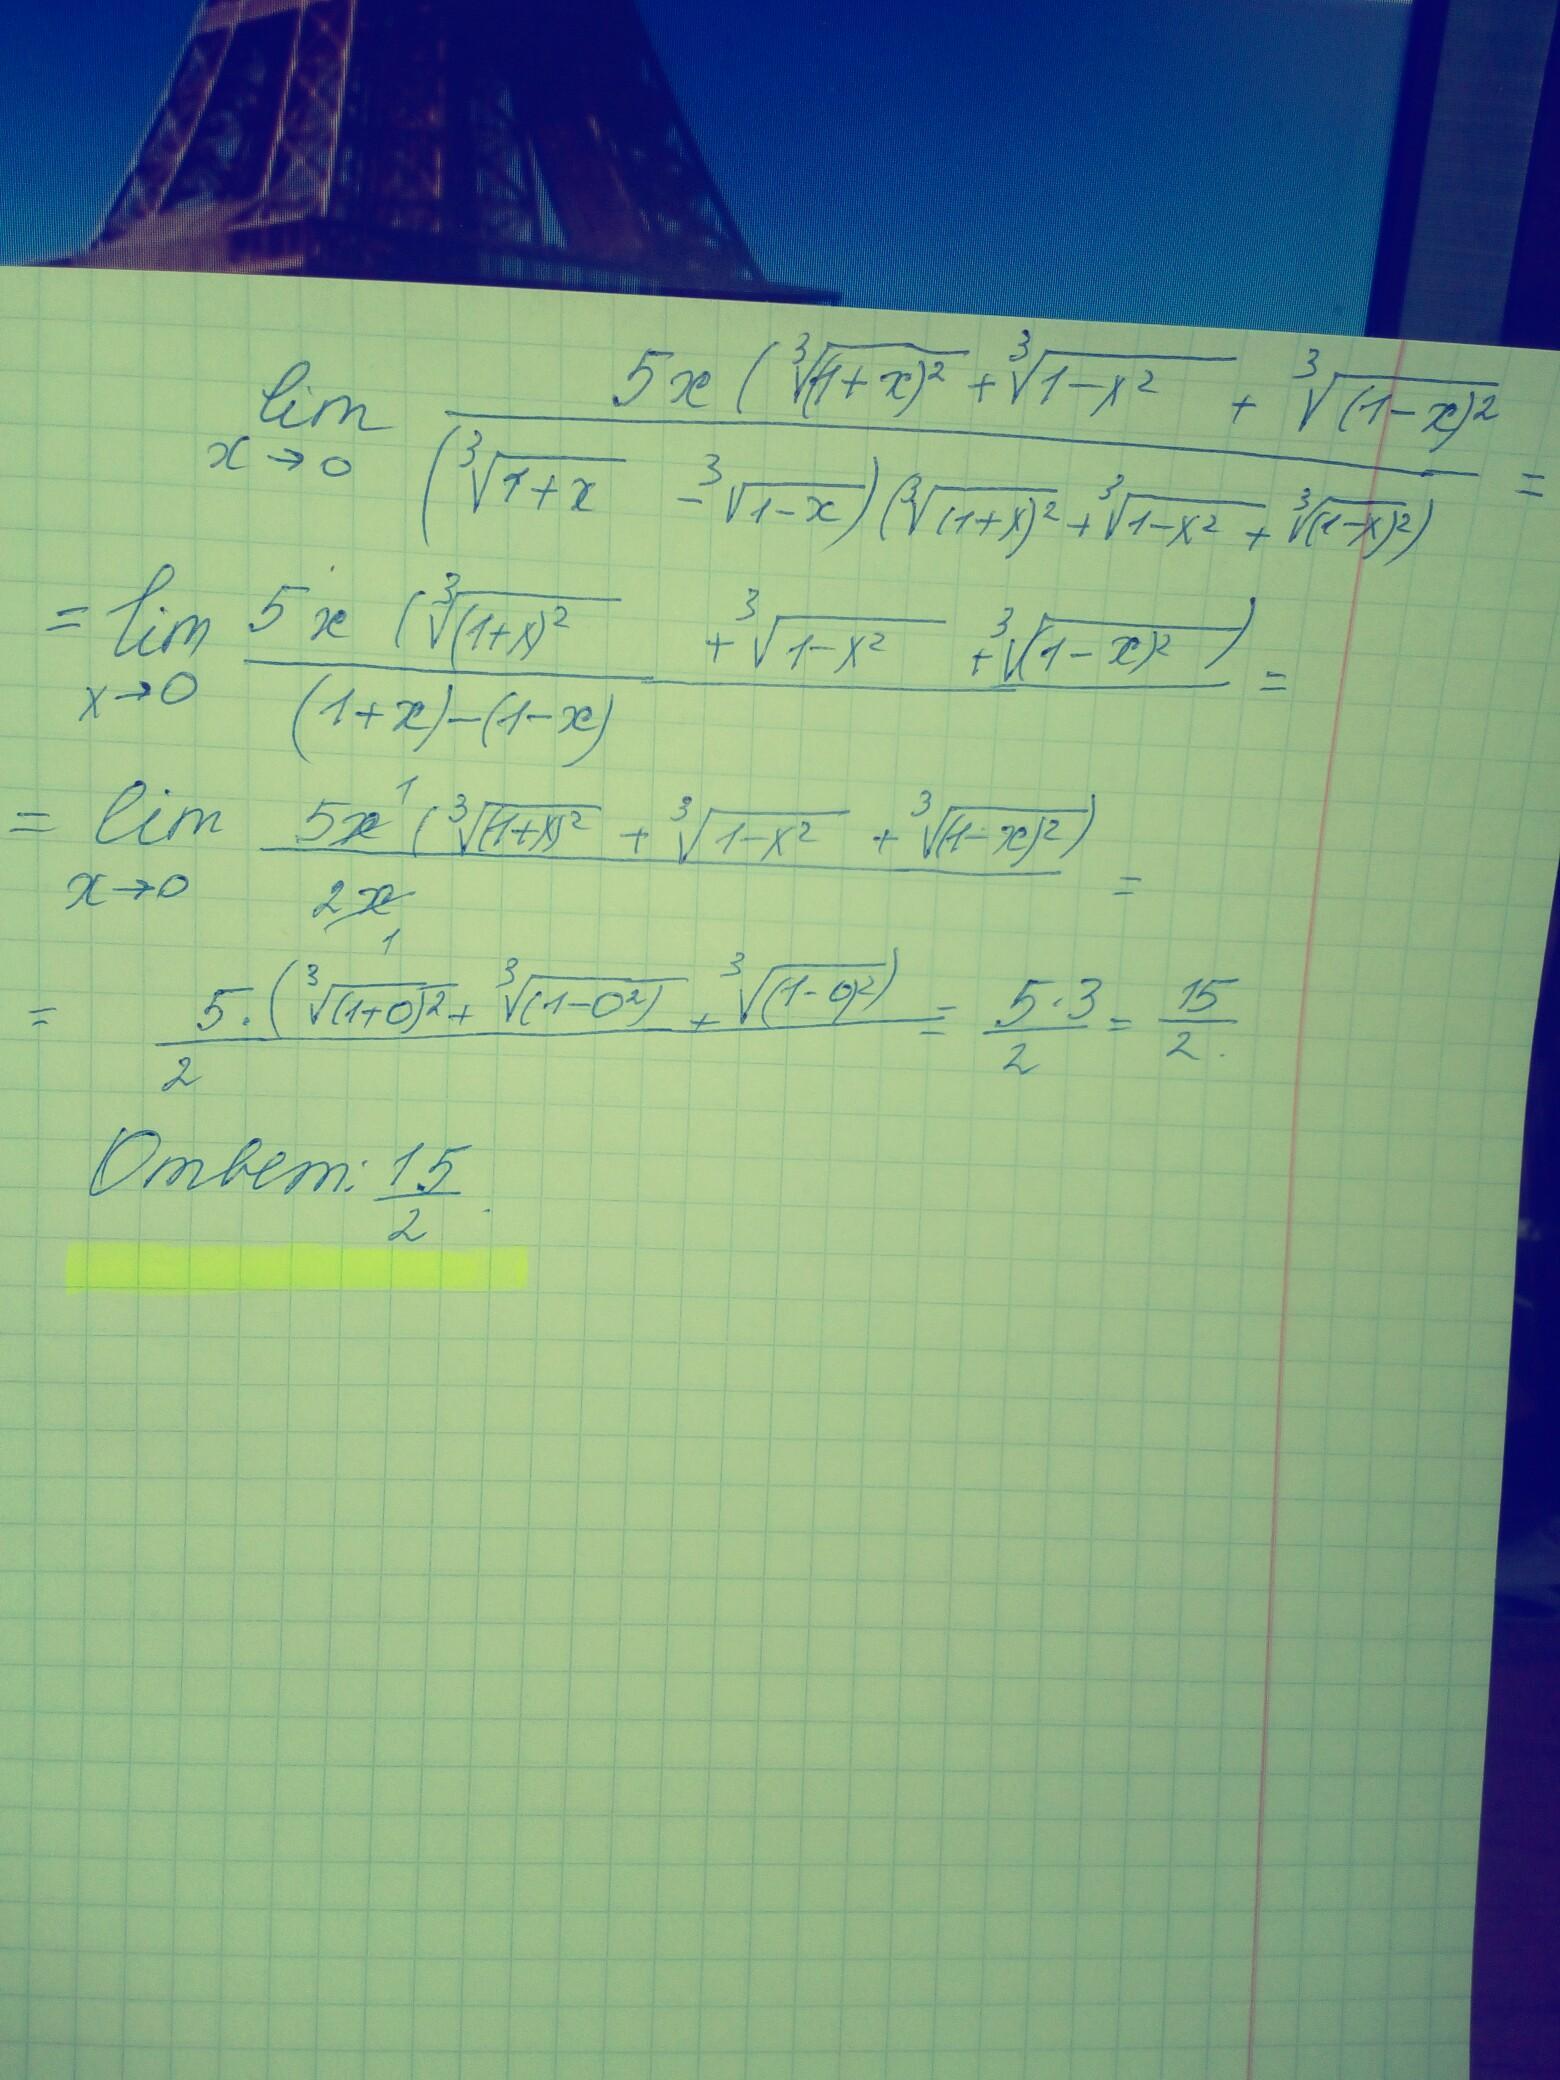 lim x→0 5x(∛(1+x)² + ∛1−x² + ∛(1−x)² / (∛1+x − ∛1−x)(∛(1+x)² + ∛1−x² + ∛(1−x)²) =
= lim x→0 5x(∛(1+x)² + ∛1−x² + ∛(1−x)²) / (1+x)−(1−x) =
= lim x→0 5x¹(∛(1+x)² + ∛1−x² + ∛(1−x)²) / 2x 1 =
= 5·(∛(1+0)² + ∛(1−0²) + ∛(1−0)²) / 2 = 5·3 / 2 = 15 / 2.
Ответ: 15 / 2.